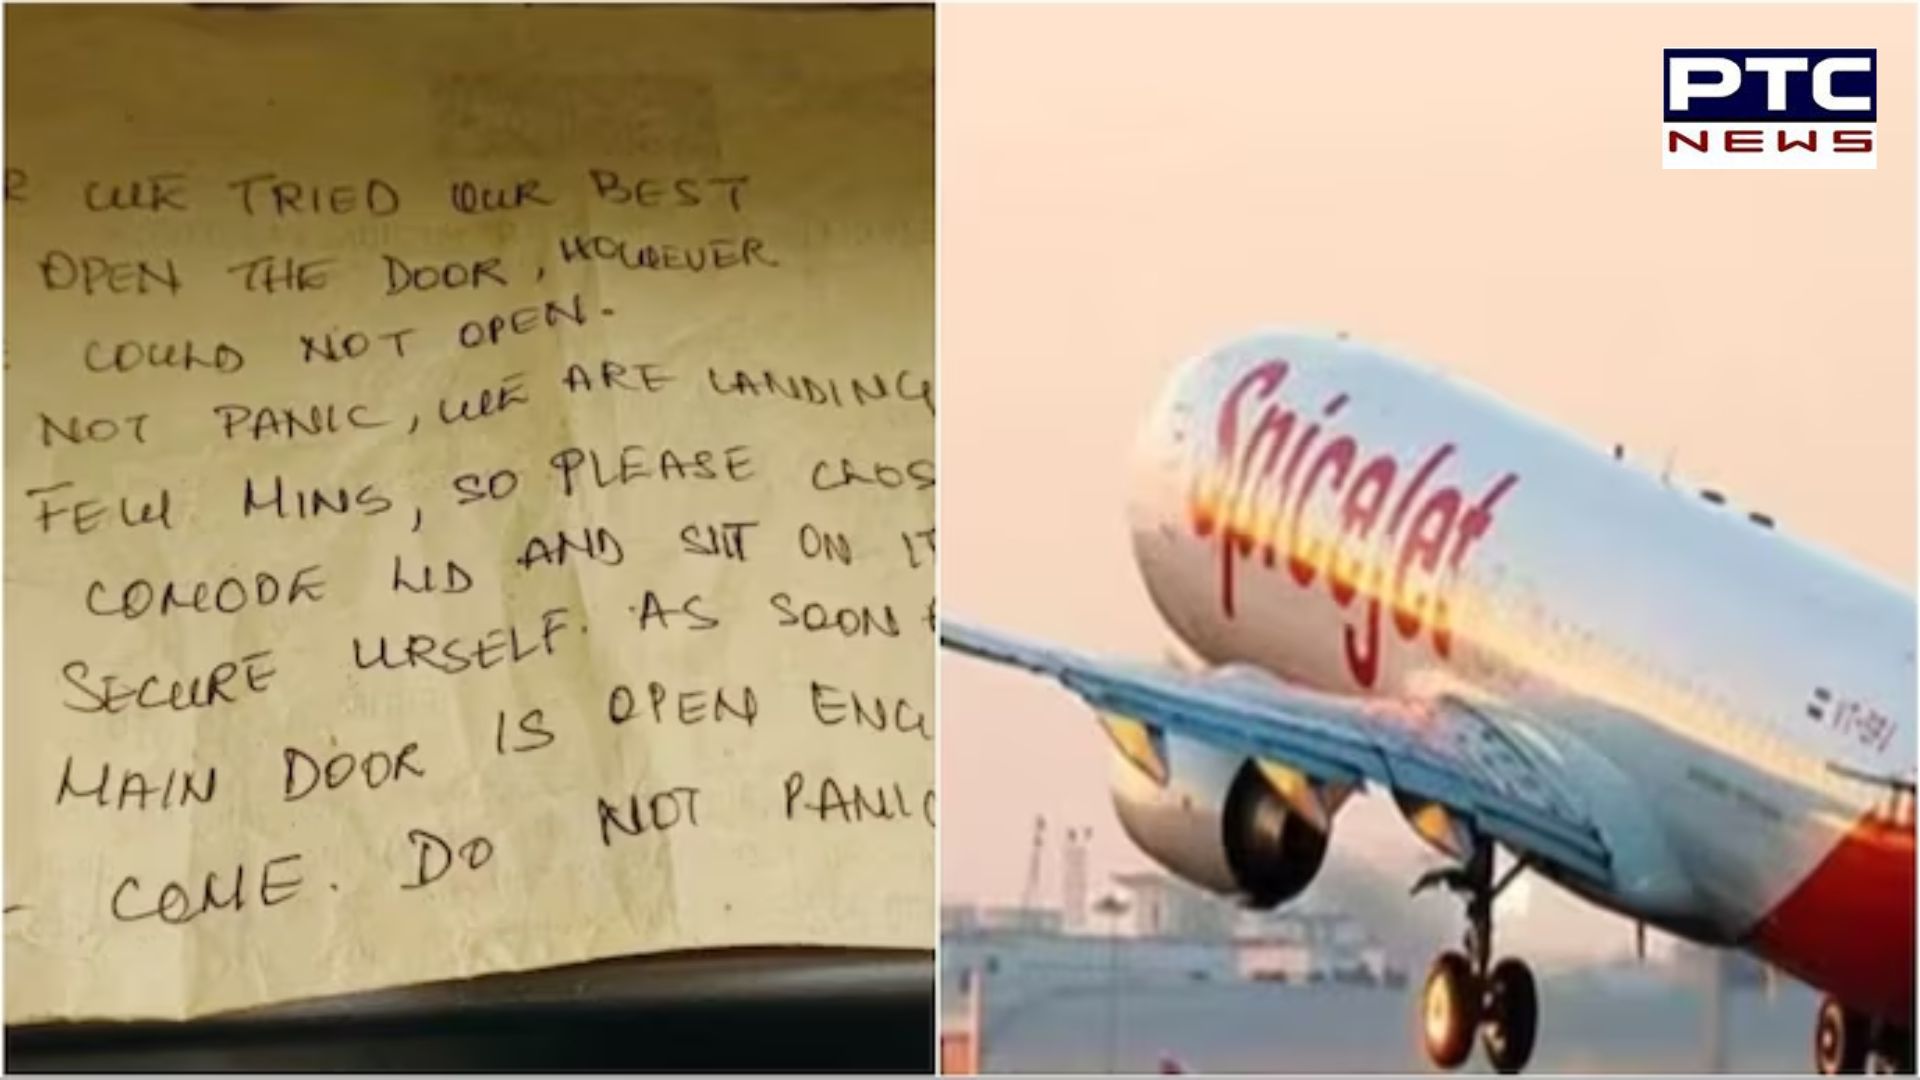 R WE TRIED OUR BEST
OPEN THE DOOR, HOWEVER
COULD NOT OPEN.
NOT PANIC, WE ARE LANDING
FEW MINS, SO PLEASE CLOS
COMODE LID AND SIT ON IT
SECURE URSELF. AS SOON A
MAIN DOOR IS OPEN ENG
COME. DO NOT PANIC
PTC
NEWS
SpiceJet